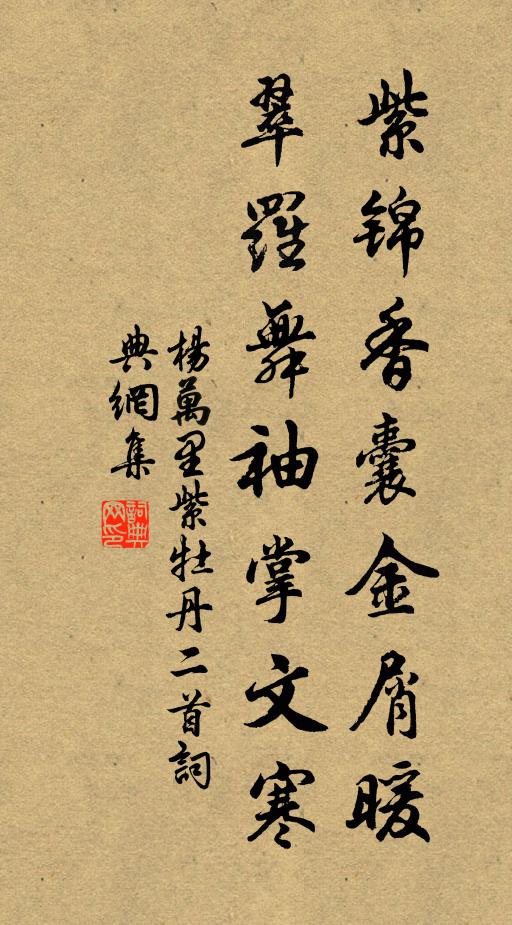 紫锦香囊金屑暖
翠羅舞袖掌文寒
楊萬里紫牡丹二首詞
典網集
詞典網印